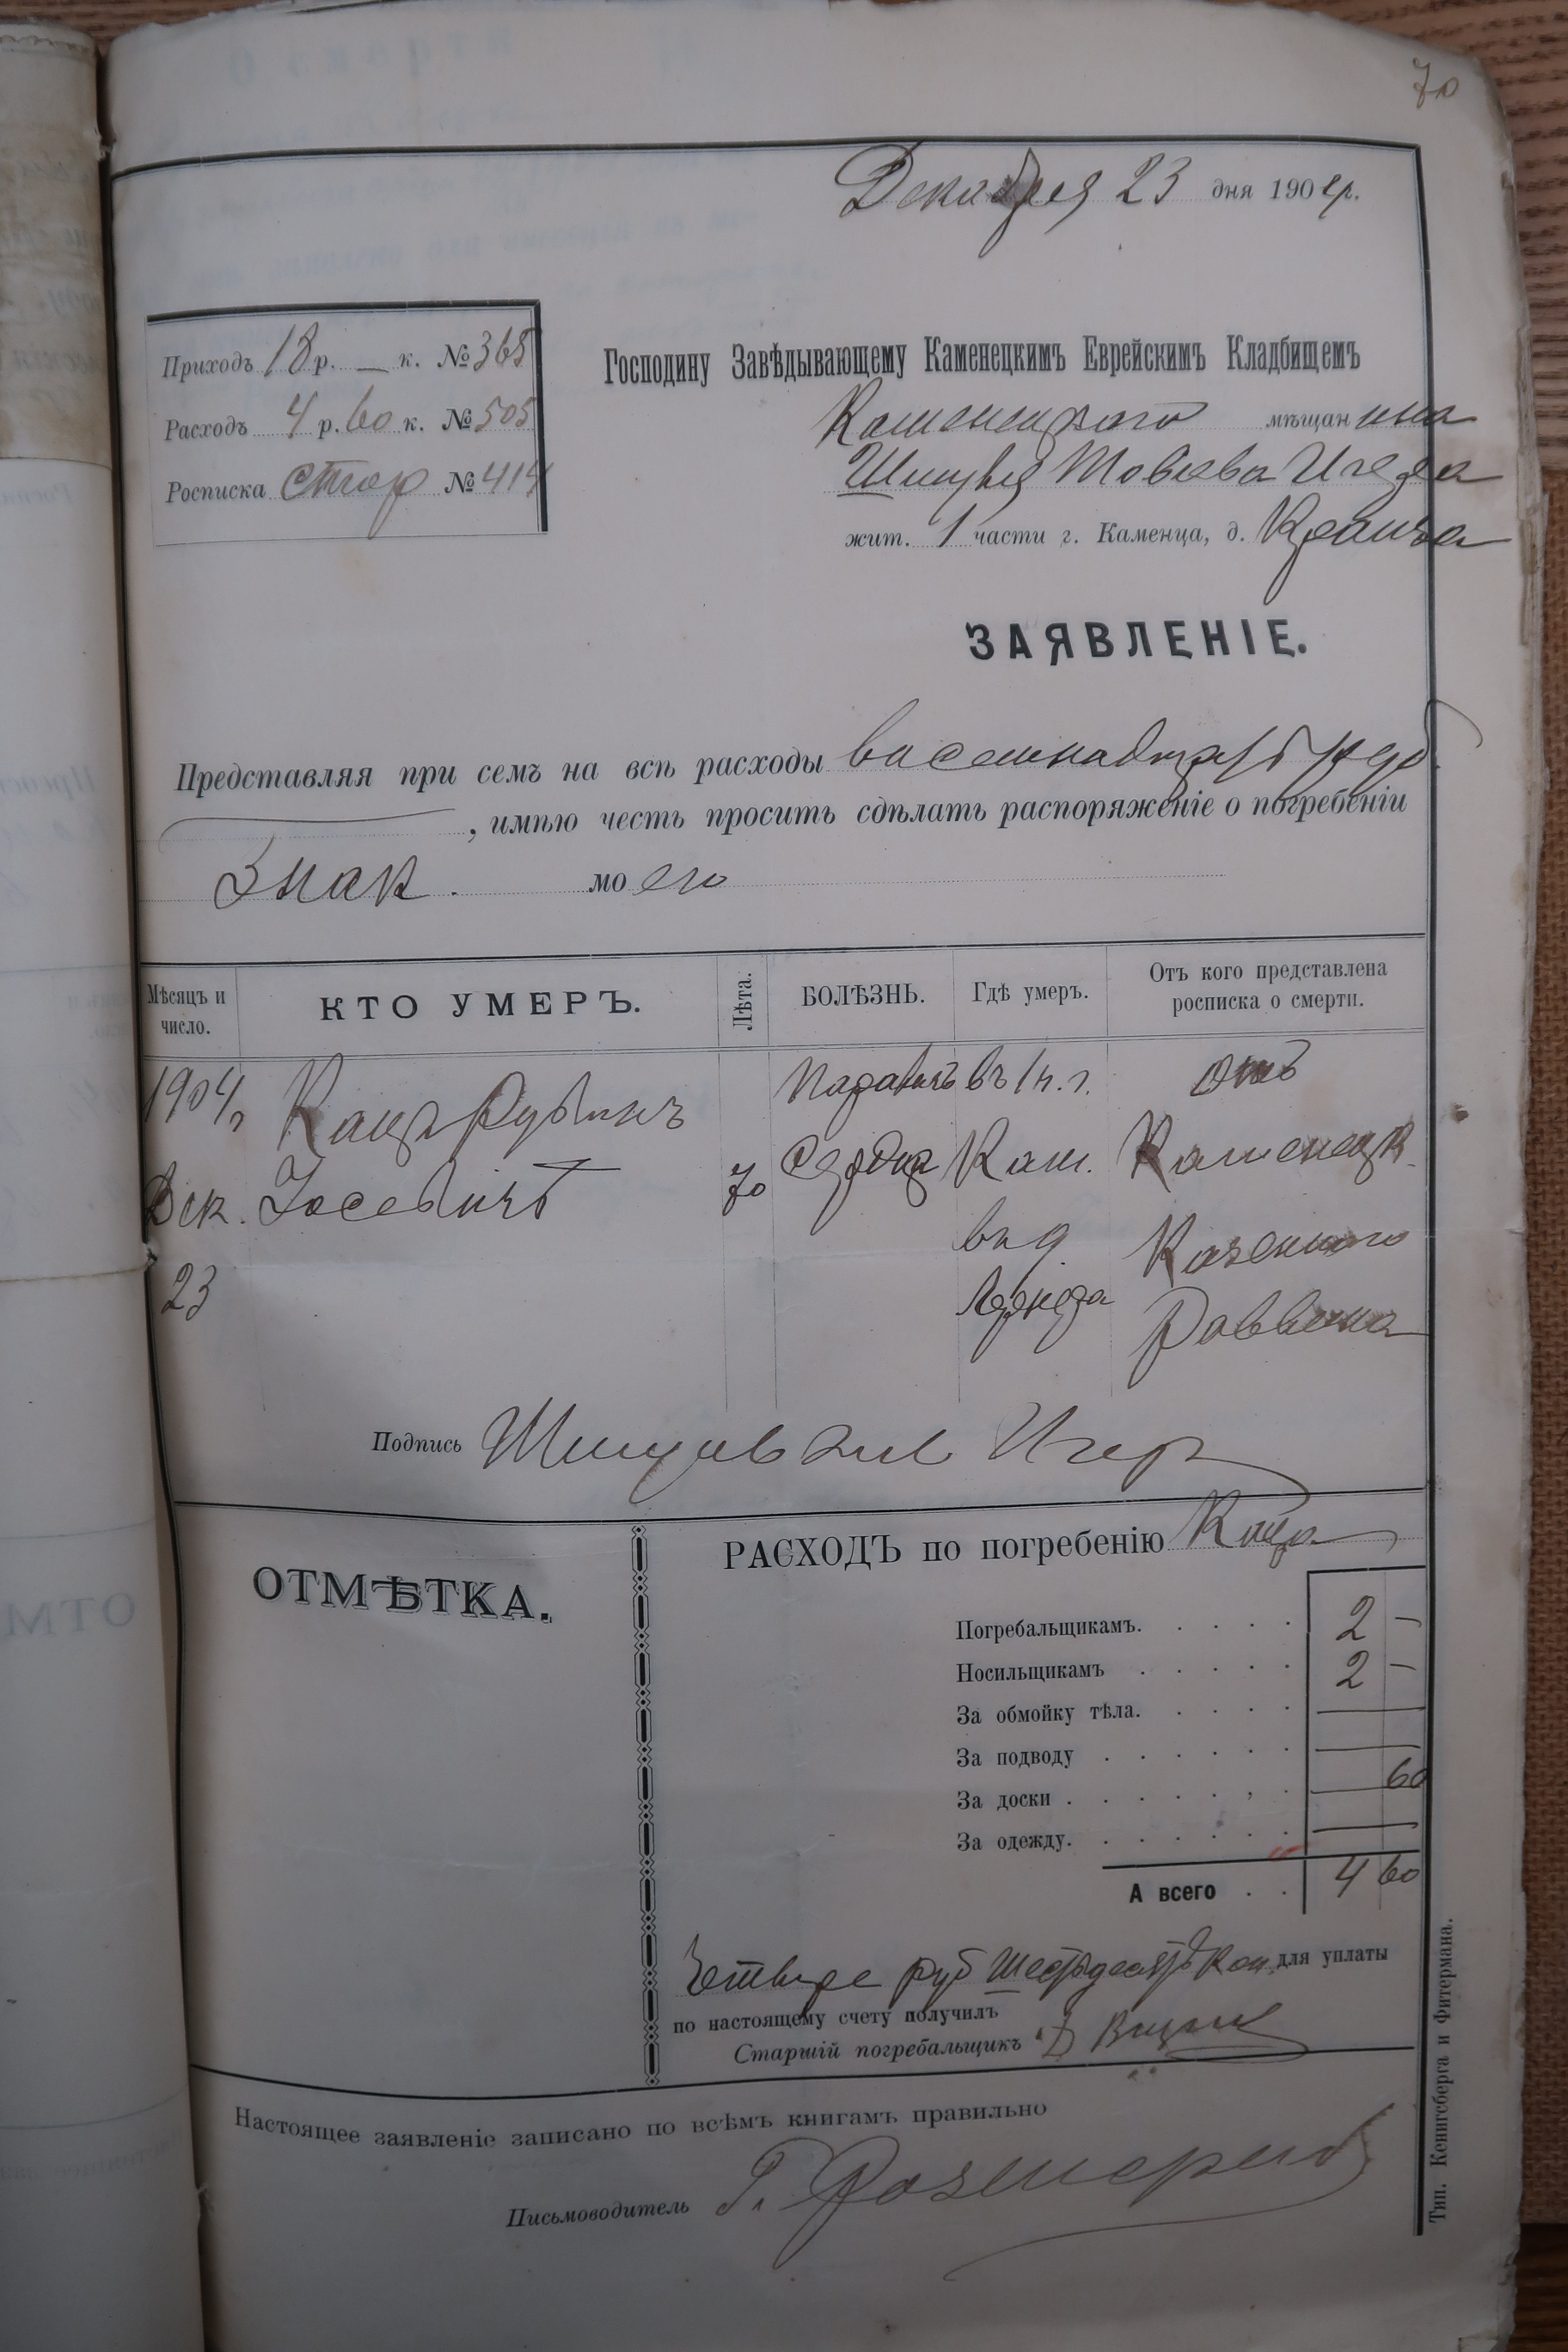 70
Декабря 23 дня 1904 г.
Приходъ 18 р. — к. № 365
Расходъ 4 р. 60 к. № 505
Росписка стар № 414
Господину Завѣдывающему Каменецкимъ Еврейскимъ Кладбищемъ
Каменецкого мѣщанина
Шмуля Товіева Игера
жит. 1 части г. Каменца, д.
ЗАЯВЛЕНІЕ.
Представляя при семъ на всѣ расходы восемнадцать руб.
, имѣю честь просить сдѣлать распоряженіе о погребеніи
Знак. моего
Мѣсяцъ и число.
КТО УМЕРЪ.
Лѣта.
БОЛѢЗНЬ.
Гдѣ умеръ.
Отъ кого представлена росписка о смерти.
1904 г. Кацъ Рувинъ Паралич въ 1 ч. г. отъ
Дек. Іосевичъ 70 Сердца Кам. Каменецк.
23 в д. Казенного
Раввина
Подпись Игер
ОТМѢТКА.
РАСХОДЪ по погребенію Каца
Погребальщикамъ. 2 —
Носильщикамъ 2 —
За обмойку тѣла. —
За подводу —
За доски — 60
За одежду. —
А всего 4 60
Четыре руб Шестьдесятъ коп для уплаты
по настоящему счету получилъ
Старшій погребальщикъ
Настоящее заявленіе записано по всѣмъ книгамъ правильно
Письмоводитель
Тип. Кенигсберга и Фитермана.